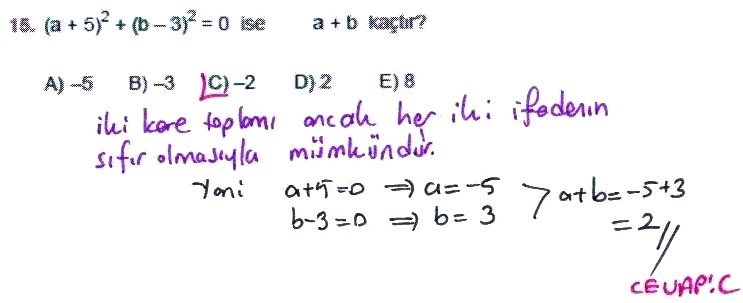 15. (a + 5)² + (b – 3)² = 0 ise a + b kaçtır?
A) –5 B) –3 C) –2 D) 2 E) 8
iki kare toplamı ancak her iki ifadenin
sıfır olmasıyla mümkündür.
Yani a+5=0 ⇒ a=-5 > a+b=-5+3
b-3=0 ⇒ b= 3 =-2//
CEVAP: C